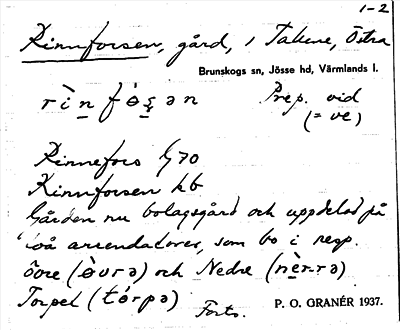 1-2
Rinnforsen, gård, i Takene, Östra
Brunskogs sn, Jösse hd, Värmlands l.
rìn̠fòs̠ən Prep. vid
(= ve)
Rinnefors G 70
Rinnforsen kb
Gården nu bolagsgård och uppdelad på
två arrendatorer, som bo i resp.
Övre (òvrə) och Nedre (nèrrə)
Torpet (tórpə)
Forts. P. O. GRANÉR 1937.